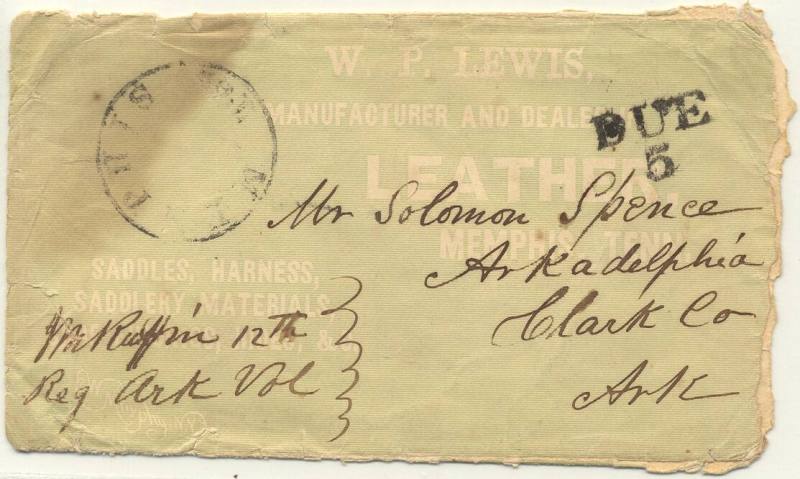 W. P. LEWIS,
MANUFACTURER AND DEALER
DUE
5
LEATHER,
MEMPHIS, TENN
Mr Solomon Spence
Arkadelphia
Clark Co
Ark
SADDLES, HARNESS,
SADDLERY MATERIALS
Wm Ruffin 12th
Reg Ark Vol